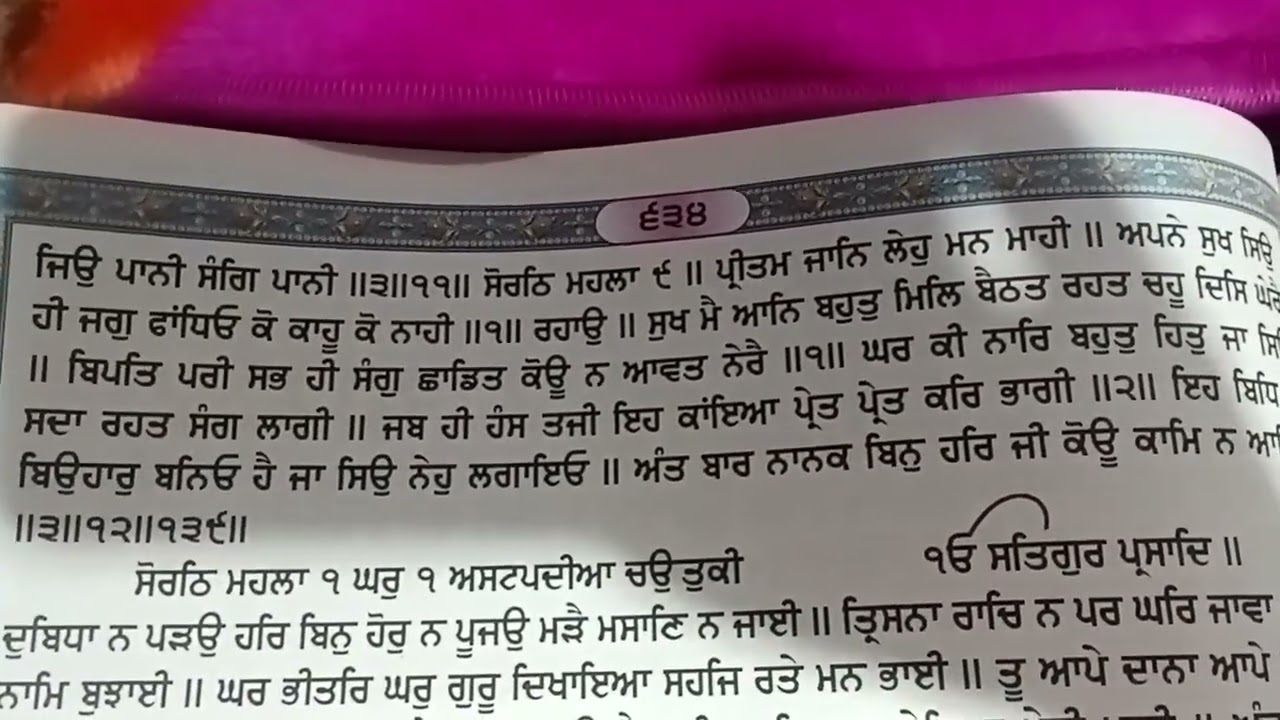 ੬੩੪
ਜਿਉ ਪਾਨੀ ਸੰਗਿ ਪਾਨੀ ॥੩॥੧੧॥ ਸੋਰਠਿ ਮਹਲਾ ੯ ॥ ਪ੍ਰੀਤਮ ਜਾਨਿ ਲੇਹੁ ਮਨ ਮਾਹੀ ॥ ਅਪਨੇ ਸੁਖ ਸਿਉ
ਹੀ ਜਗੁ ਫਾਂਧਿਓ ਕੋ ਕਾਹੂ ਕੋ ਨਾਹੀ ॥੧॥ ਰਹਾਉ ॥ ਸੁਖ ਮੈ ਆਨਿ ਬਹੁਤੁ ਮਿਲਿ ਬੈਠਤ ਰਹਤ ਚਹੂ ਦਿਸਿ ਘੇਰੈ
॥ ਬਿਪਤਿ ਪਰੀ ਸਭ ਹੀ ਸੰਗੁ ਛਾਡਿਤ ਕੋਊ ਨ ਆਵਤ ਨੇਰੈ ॥੧॥ ਘਰ ਕੀ ਨਾਰਿ ਬਹੁਤੁ ਹਿਤੁ ਜਾ
ਸਦਾ ਰਹਤ ਸੰਗ ਲਾਗੀ ॥ ਜਬ ਹੀ ਹੰਸ ਤਜੀ ਇਹ ਕਾਂਇਆ ਪ੍ਰੇਤ ਪ੍ਰੇਤ ਕਰਿ ਭਾਗੀ ॥੨॥ ਇਹ ਬਿਧਿ
ਬਿਉਹਾਰੁ ਬਨਿਓ ਹੈ ਜਾ ਸਿਉ ਨੇਹੁ ਲਗਾਇਓ ॥ ਅੰਤ ਬਾਰ ਨਾਨਕ ਬਿਨੁ ਹਰਿ ਜੀ ਕੋਊ ਕਾਮਿ ਨ
॥੩॥੧੨॥੧੩੯॥
ਸੋਰਠਿ ਮਹਲਾ ੧ ਘਰੁ ੧ ਅਸਟਪਦੀਆ ਚਉਤੁਕੀ ੴ ਸਤਿਗੁਰ ਪ੍ਰਸਾਦਿ ॥
ਦੁਬਿਧਾ ਨ ਪੜਉ ਹਰਿ ਬਿਨੁ ਹੋਰੁ ਨ ਪੂਜਉ ਮੜੈ ਮਸਾਣਿ ਨ ਜਾਈ ॥ ਤ੍ਰਿਸਨਾ ਰਾਚਿ ਨ ਪਰ ਘਰਿ ਜਾਵਾ
ਨਾਮਿ ਬੁਝਾਈ ॥ ਘਰ ਭੀਤਰਿ ਘਰੁ ਗੁਰੂ ਦਿਖਾਇਆ ਸਹਜਿ ਰਤੇ ਮਨ ਭਾਈ ॥ ਤੂ ਆਪੇ ਦਾਨਾ ਆਪੇ